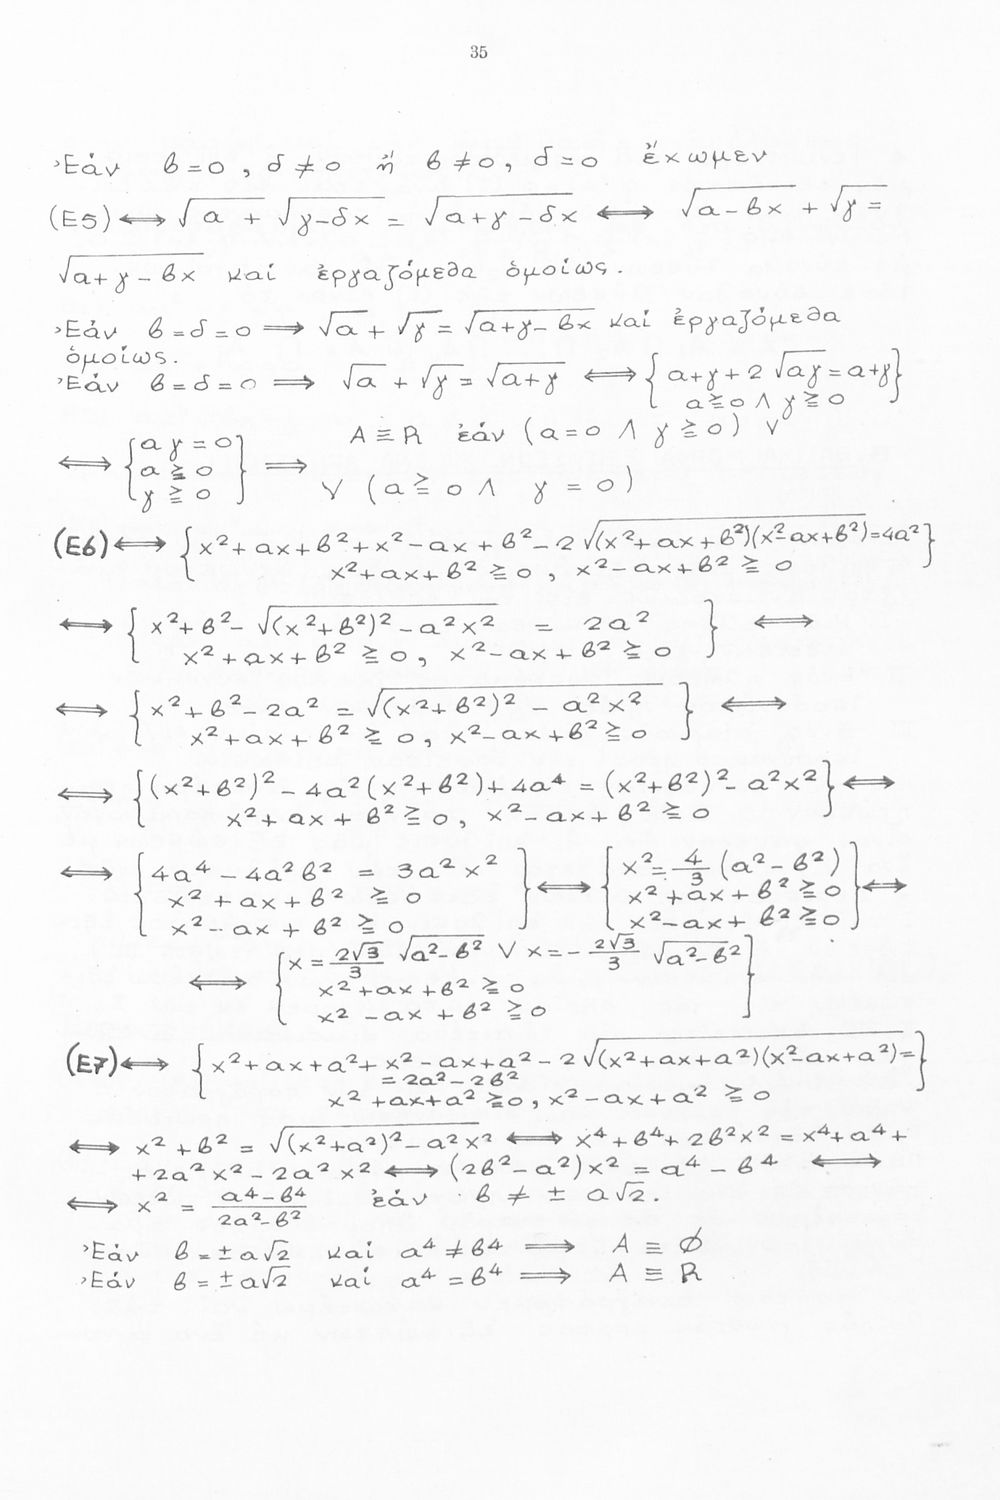 35
Ἐάν β=0 , δ≠0 ἤ β≠0, δ=0 ἔχωμεν
(E5) ⟺ √a + √γ-δx = √a+γ-δx ⟺ √a-βx + √γ =
√a+γ-βx καί ἐργαζόμεθα ὁμοίως.
Ἐάν β=δ=0 ⟹ √a + √γ = √a+γ-βx καί ἐργαζόμεθα
ὁμοίως.
Ἐάν β=δ=0 ⟹ √a + √γ = √a+γ ⟺ { a+γ+2√aγ=a+γ }
a≧0 ∧ γ≧0
⟺ { aγ=0 } A≡R ἐάν (a=0 ∧ γ≧0) ∨
a≧0 ⟹
γ≧0 ∨ (a≧0 ∧ γ=0)
(E6) ⟺ { x²+ax+β²+x²-ax+β²-2√(x²+ax+β²)(x²-ax+β²)=4a² }
x²+ax+β²≧0, x²-ax+β²≧0
⟺ { x²+β²-√(x²+β²)²-a²x² = 2a² } ⟺
x²+ax+β²≧0, x²-ax+β²≧0
⟺ { x²+β²-2a² = √(x²+β²)²-a²x² } ⟺
x²+ax+β²≧0, x²-ax+β²≧0
⟺ { (x²+β²)²-4a²(x²+β²)+4a⁴ = (x²+β²)²-a²x² } ⟺
x²+ax+β²≧0, x²-ax+β²≧0
⟺ { 4a⁴-4a²β² = 3a²x² } ⟺ { x²=4/3 (a²-β²) } ⟺
x²+ax+β²≧0 x²+ax+β²≧0
x²-ax+β²≧0 x²-ax+β²≧0
⟺ { x=2√3/3 √a²-β² ∨ x=-2√3/3 √a²-β² }
x²+ax+β²≧0
x²-ax+β²≧0
(E7) ⟺ { x²+ax+a²+x²-ax+a²-2√(x²+ax+a²)(x²-ax+a²)= }
=2a²-2β²
x²+ax+a²≧0, x²-ax+a²≧0
⟺ x²+β² = √(x²+a²)²-a²x² ⟺ x⁴+β⁴+2β²x²=x⁴+a⁴+
+2a²x²-2a²x² ⟺ (2β²-a²)x² = a⁴-β⁴ ⟺
⟺ x² = a⁴-β⁴/2a²-β² ἐάν β ≠ ± a√2.
Ἐάν β=±a√2 καί a⁴≠β⁴ ⟹ A ≡ ∅
Ἐάν β=±a√2 καί a⁴=β⁴ ⟹ A ≡ R